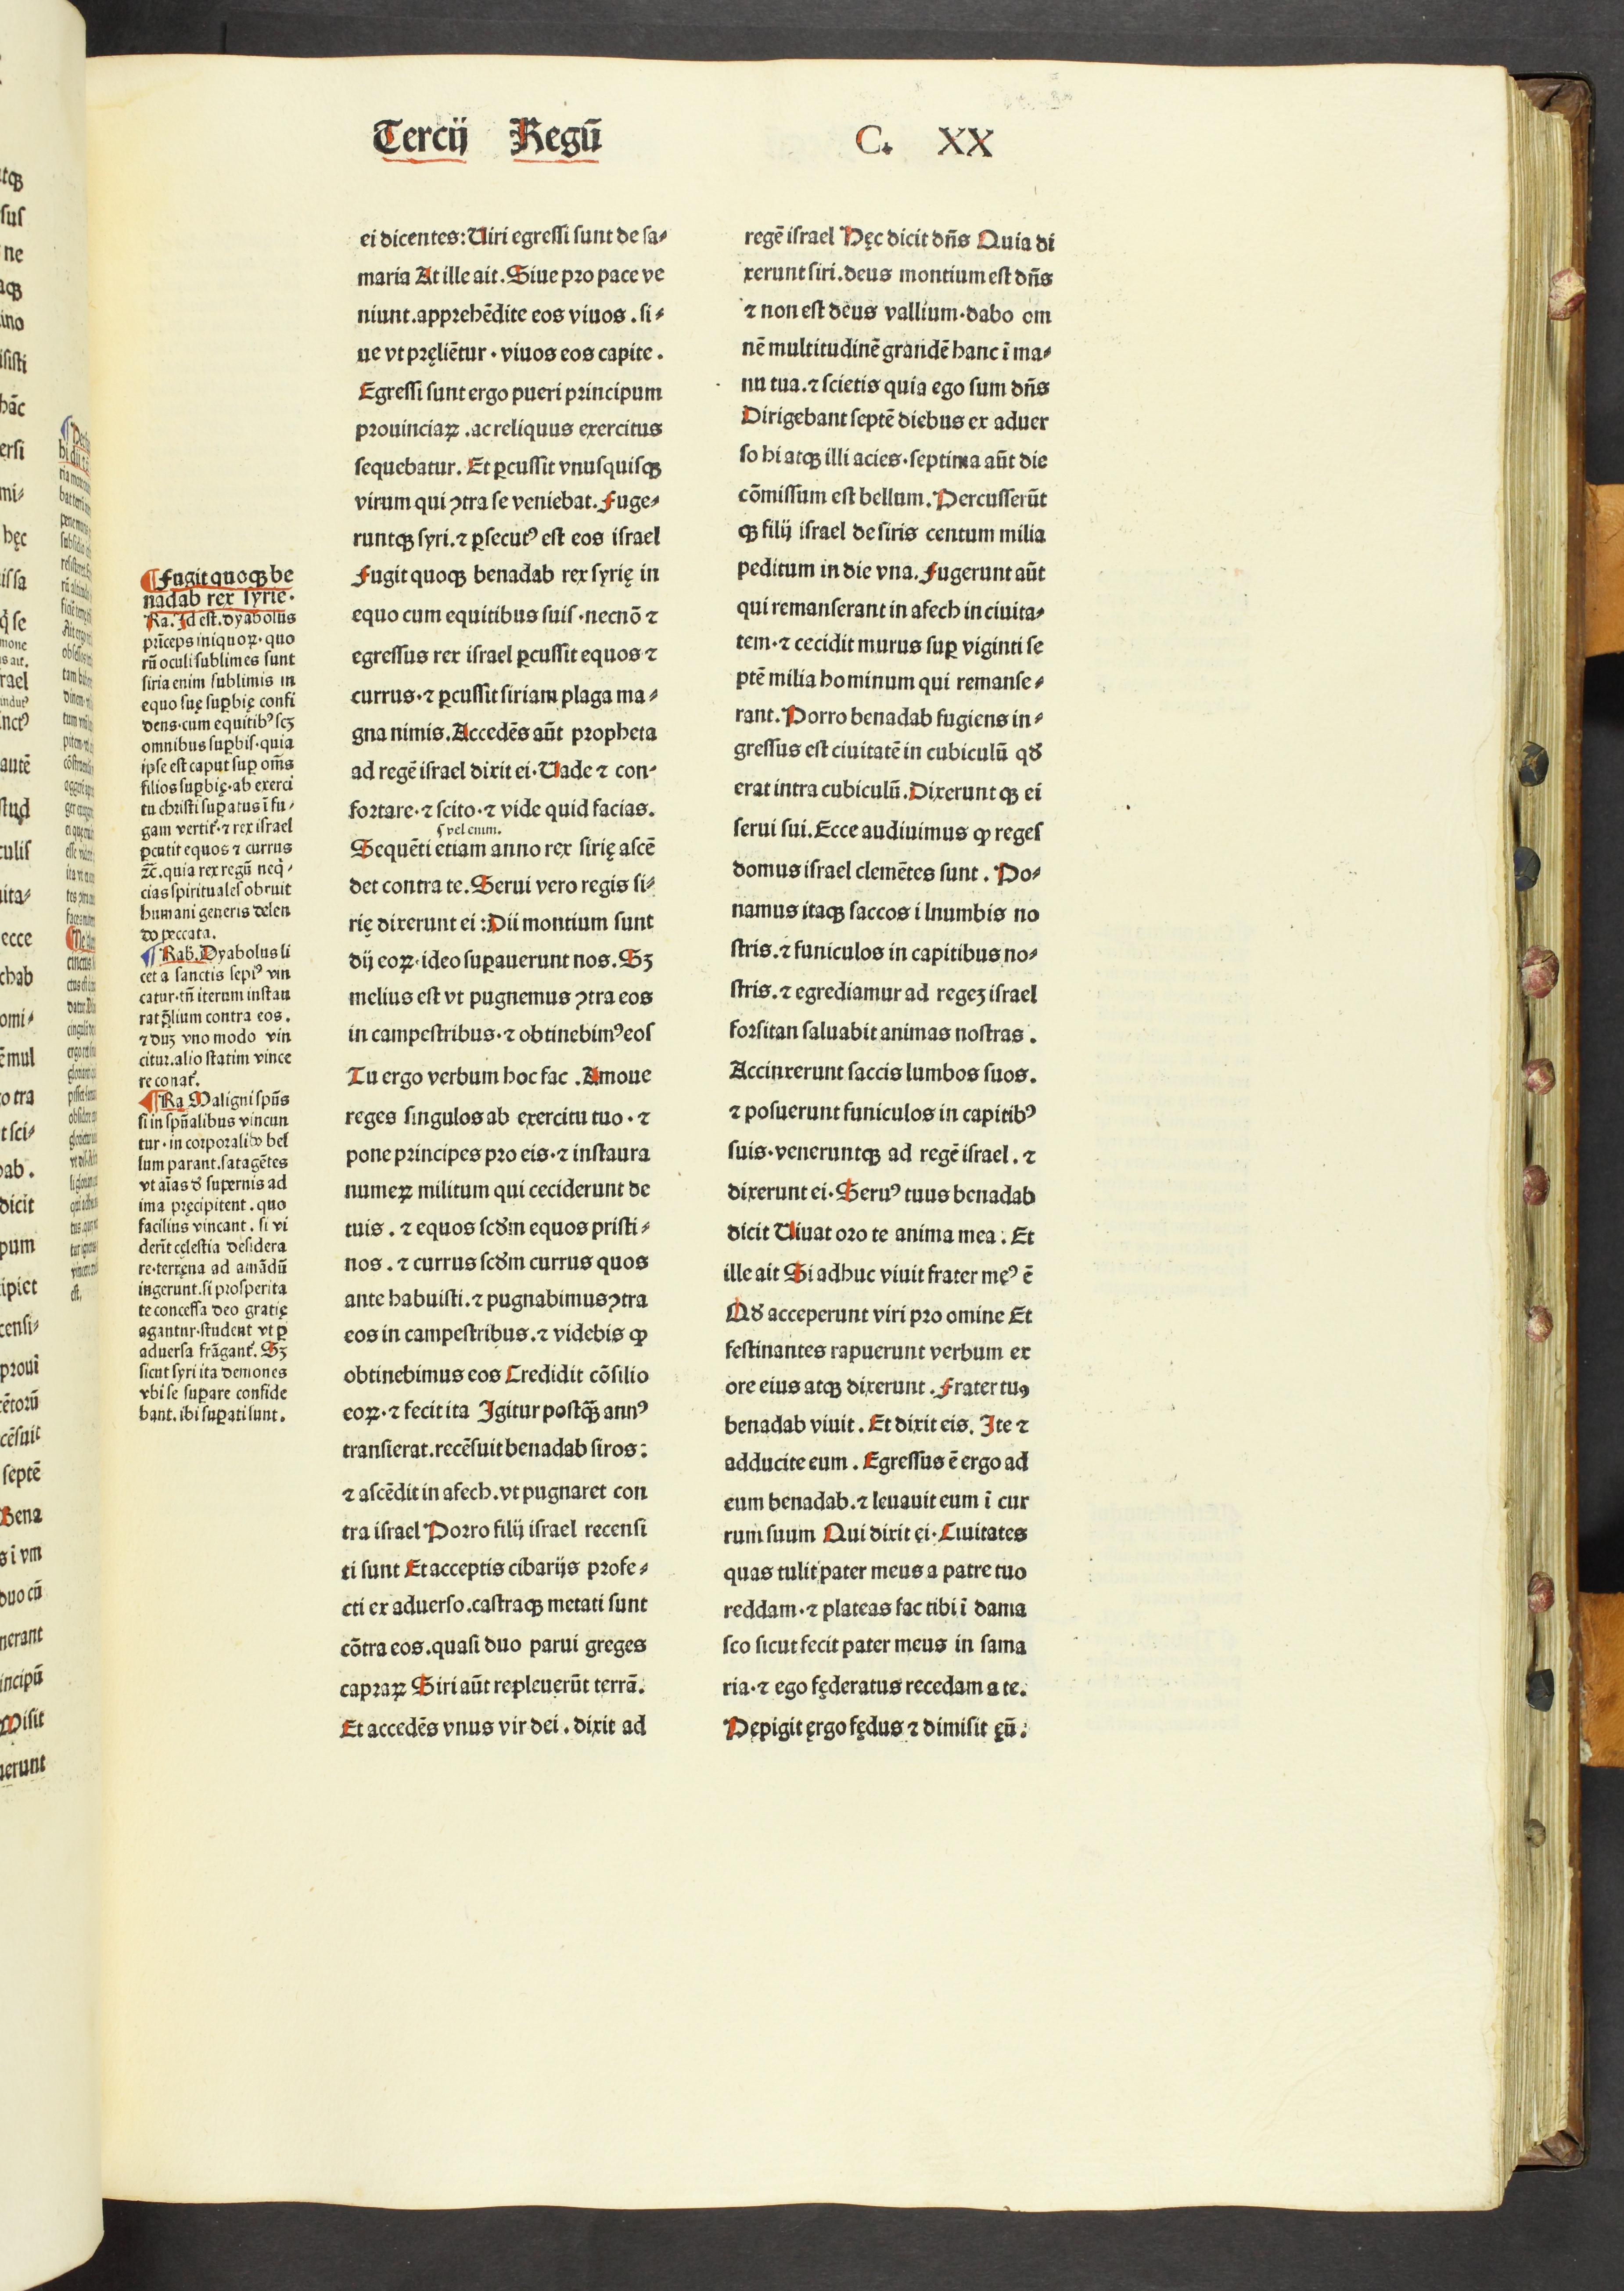 Tercij Regū C. XX
¶Fugit quoqꝫ be
nadab rex syrie.
Ra. Id est. dyabolus
pri̅ceps iniquoꝝ. quo
rū oculi sublimes sunt
siria enim sublimis in
equo suę suꝑbię confi
dens. cum equitibꝰ scꝫ
omnibus suꝑbis. quia
ipse est caput suꝑ om̅s
filios suꝑbię. ab exerci
tu christi suꝑatus ī fu⸗
gam vertit̉. ⁊ rex israel
ꝑcutit equos ⁊ currus
⁊c̅. quia rex regū neq̇⸗
cias spirituales obruit
humani generis delen
do peccata.
¶Rab. Dyabolus li
cet a sanctis sepiꝰ vin
catur. tn̅ iterum instau
rat p̨lium contra eos.
⁊ duꝫ vno modo vin
citur. alio statim vince
re conat̉.
¶Ra Maligni spūs
si in spūalibus vincun
tur. in corporalibꝰ bel
lum parant. satagētes
vt aīas ꝺ̉ supernis ad
ima pręcipitent. quo
facilius vincant. si vi
derīt cęlestia desidera
re. terręna ad amādū
ingerunt. si prosperita
te concessa deo gratię
agantur. student vt ꝑ
aduersa frāgant̉. Sꝫ
sicut syri ita demones
vbi se suꝑare confide
bant. ibi suꝑati sunt.
ei dicentes: Uiri egressi sunt de sa⸗
maria At ille ait. Siue pro pace ve
niunt. apprehēdite eos viuos. si⸗
ue vt pręliētur. viuos eos capite.
Egressi sunt ergo pueri principum
prouinciaꝝ. ac reliquus exercitus
sequebatur. Et ꝑcussit vnusquisqꝫ
virum qui ꝯtra se veniebat. Fuge⸗
runtqꝫ syri. ⁊ ꝑsecutꝰ est eos israel
Fugit quoqꝫ benadab rex syrię in
equo cum equitibus suis. necnō ⁊
egressus rex israel ꝑcussit equos ⁊
currus. ⁊ ꝑcussit siriam plaga ma⸗
gna nimis. Accedēs aūt propheta
ad regē israel dixit ei. Uade ⁊ con⸗
fortare. ⁊ scito. ⁊ vide quid facias.
ſ vel enim.
Sequēti etiam anno rex sirię ascē
det contra te. Serui vero regis si⸗
rię dixerunt ei: Dii montium sunt
dij eoꝝ. ideo suꝑauerunt nos. Sꝫ
melius est vt pugnemus ꝯtra eos
in campestribus. ⁊ obtinebimꝰ eos
Tu ergo verbum hoc fac. Amoue
reges singulos ab exercitu tuo. ⁊
pone principes pro eis. ⁊ instaura
numeꝝ militum qui ceciderunt de
tuis. ⁊ equos scꝺm equos pristi⸗
nos. ⁊ currus scꝺm currus quos
ante habuisti. ⁊ pugnabimus ꝯtra
eos in campestribus. ⁊ videbis ꝙ
obtinebimus eos Credidit cōsilio
eoꝝ. ⁊ fecit ita Igitur postq̄ꝫ annꝰ
transierat. recēsuit benadab siros:
⁊ ascēdit in afech. vt pugnaret con
tra israel Porro filij israel recensi
ti sunt Et acceptis cibarijs profe⸗
cti ex aduerso. castraqꝫ metati sunt
cōtra eos. quasi duo parui greges
capraꝝ Siri aūt repleuerūt terrā.
Et accedēs vnus vir dei. dixit ad
regē israel Hęc dicit dn̅s Quia di
xerunt siri. deus montium est dn̅s
⁊ non est deus vallium. dabo om
nē multitudinē grandē hanc ī ma⸗
nu tua. ⁊ scietis quia ego sum dn̅s
Dirigebant septē diebus ex aduer
so hi atqꝫ illi acies. septima aūt die
cōmissum est bellum. Percusserūt
qꝫ filij israel de siris centum milia
peditum in die vna. Fugerunt aūt
qui remanserant in afech in ciuita⸗
tem. ⁊ cecidit murus suꝑ viginti se
ptē milia hominum qui remanse⸗
rant. Porro benadab fugiens in⸗
gressus est ciuitatē in cubiculū qꝺ
erat intra cubiculū. Dixerunt qꝫ ei
serui sui. Ecce audiuimus ꝙ reges
domus israel clemētes sunt. Po⸗
namus itaqꝫ saccos i lnumbis no
stris. ⁊ funiculos in capitibus no⸗
stris. ⁊ egrediamur ad regeꝫ israel
forsitan saluabit animas nostras.
Accinxerunt saccis lumbos suos.
⁊ posuerunt funiculos in capitibꝰ
suis. veneruntqꝫ ad regē israel. ⁊
dixerunt ei. Seruꝰ tuus benadab
dicit Uiuat oro te anima mea. Et
ille ait Si adhuc viuit frater męꝰ ē
Qꝺ acceperunt viri pro omine Et
festinantes rapuerunt verbum ex
ore eius atqꝫ dixerunt. Frater tuꝰ
benadab viuit. Et dixit eis. Ite ⁊
adducite eum. Egressus ē ergo ad
eum benadab. ⁊ leuauit eum ī cur
rum suum Qui dixit ęi. Ciuitates
quas tulit pater meus a patre tuo
reddam. ⁊ plateas fac tibi ī dama
sco sicut fecit pater meus in sama
ria. ⁊ ego fęderatus recedam a te.
Pępigit ęrgo fędus ⁊ dimisit ęū.